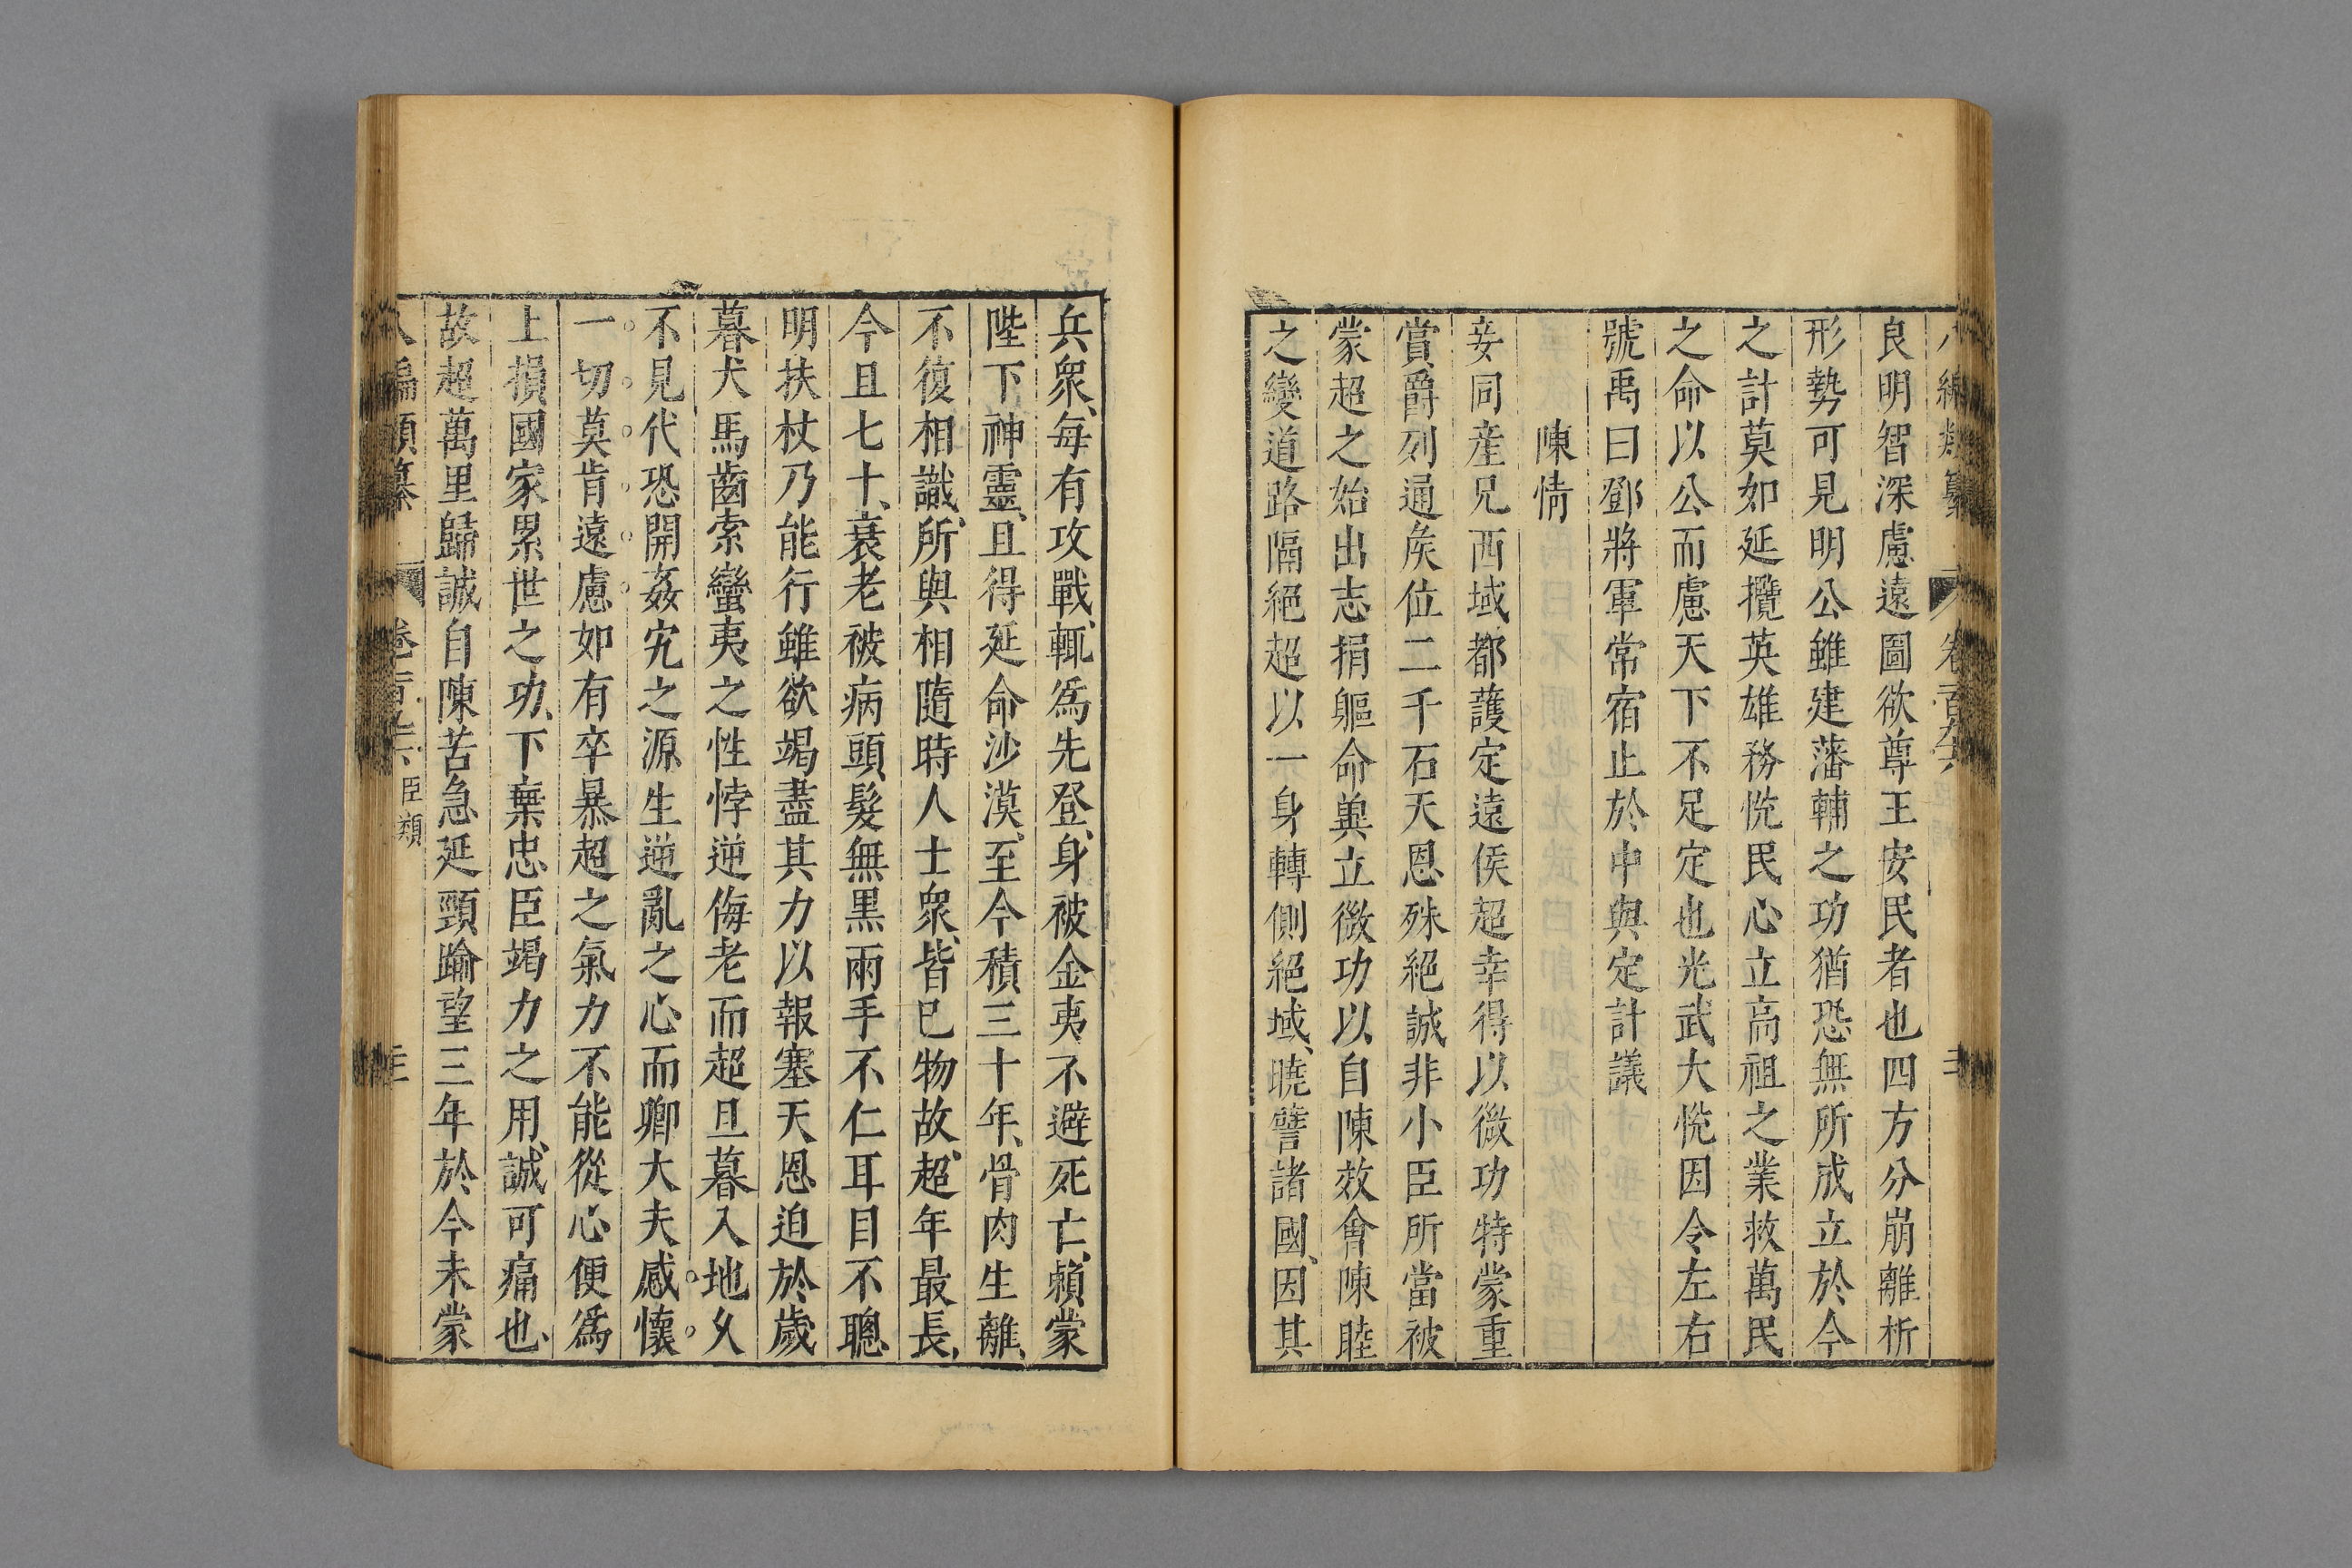 八編類纂 卷一百九六
良明智深慮遠圖欲尊王安民者也四方分崩離析
形勢可見明公雖建藩輔之功猶恐無所成立於今
之計莫如延攬英雄務悅民心立高祖之業救萬民
之命以公而慮天下不足定也光武大悅因令左右
號禹曰鄧將軍常宿止於中與定計議
陳情
妾同產兄西域都護定遠侯超幸得以微功特蒙重
賞爵列通矦位二千石天恩殊絕誠非小臣所當被
蒙超之始出志捐軀命兾立微功以自陳效會陳睦
之變道路隔絕超以一身轉側絕域、曉譬諸國、因其
兵衆、每有攻戰、輒爲先登、身被金夷不避死亡、賴蒙
陛下神靈、且得延命沙漠、至今積三十年、骨肉生離、
不復相識、所與相隨時人士衆、皆已物故、超年最長、
今且七十、衰老被病頭髮無黑兩手不仁耳目不聰
明扶杖乃能行雖欲竭盡其力以報塞天恩迫於歲
暮犬馬齒索蠻夷之性悖逆侮老而超旦暮入地久
不見代恐開姦宄之源生逆亂之心而卿大夫感懷
一切莫肯遠慮如有卒暴超之氣力不能從心便爲
上損國家累世之功、下棄忠臣竭力之用、誠可痛也、
故超萬里歸誠自陳苦急延頸踰望三年於今未蒙
八編類纂 卷一百九六 臣類